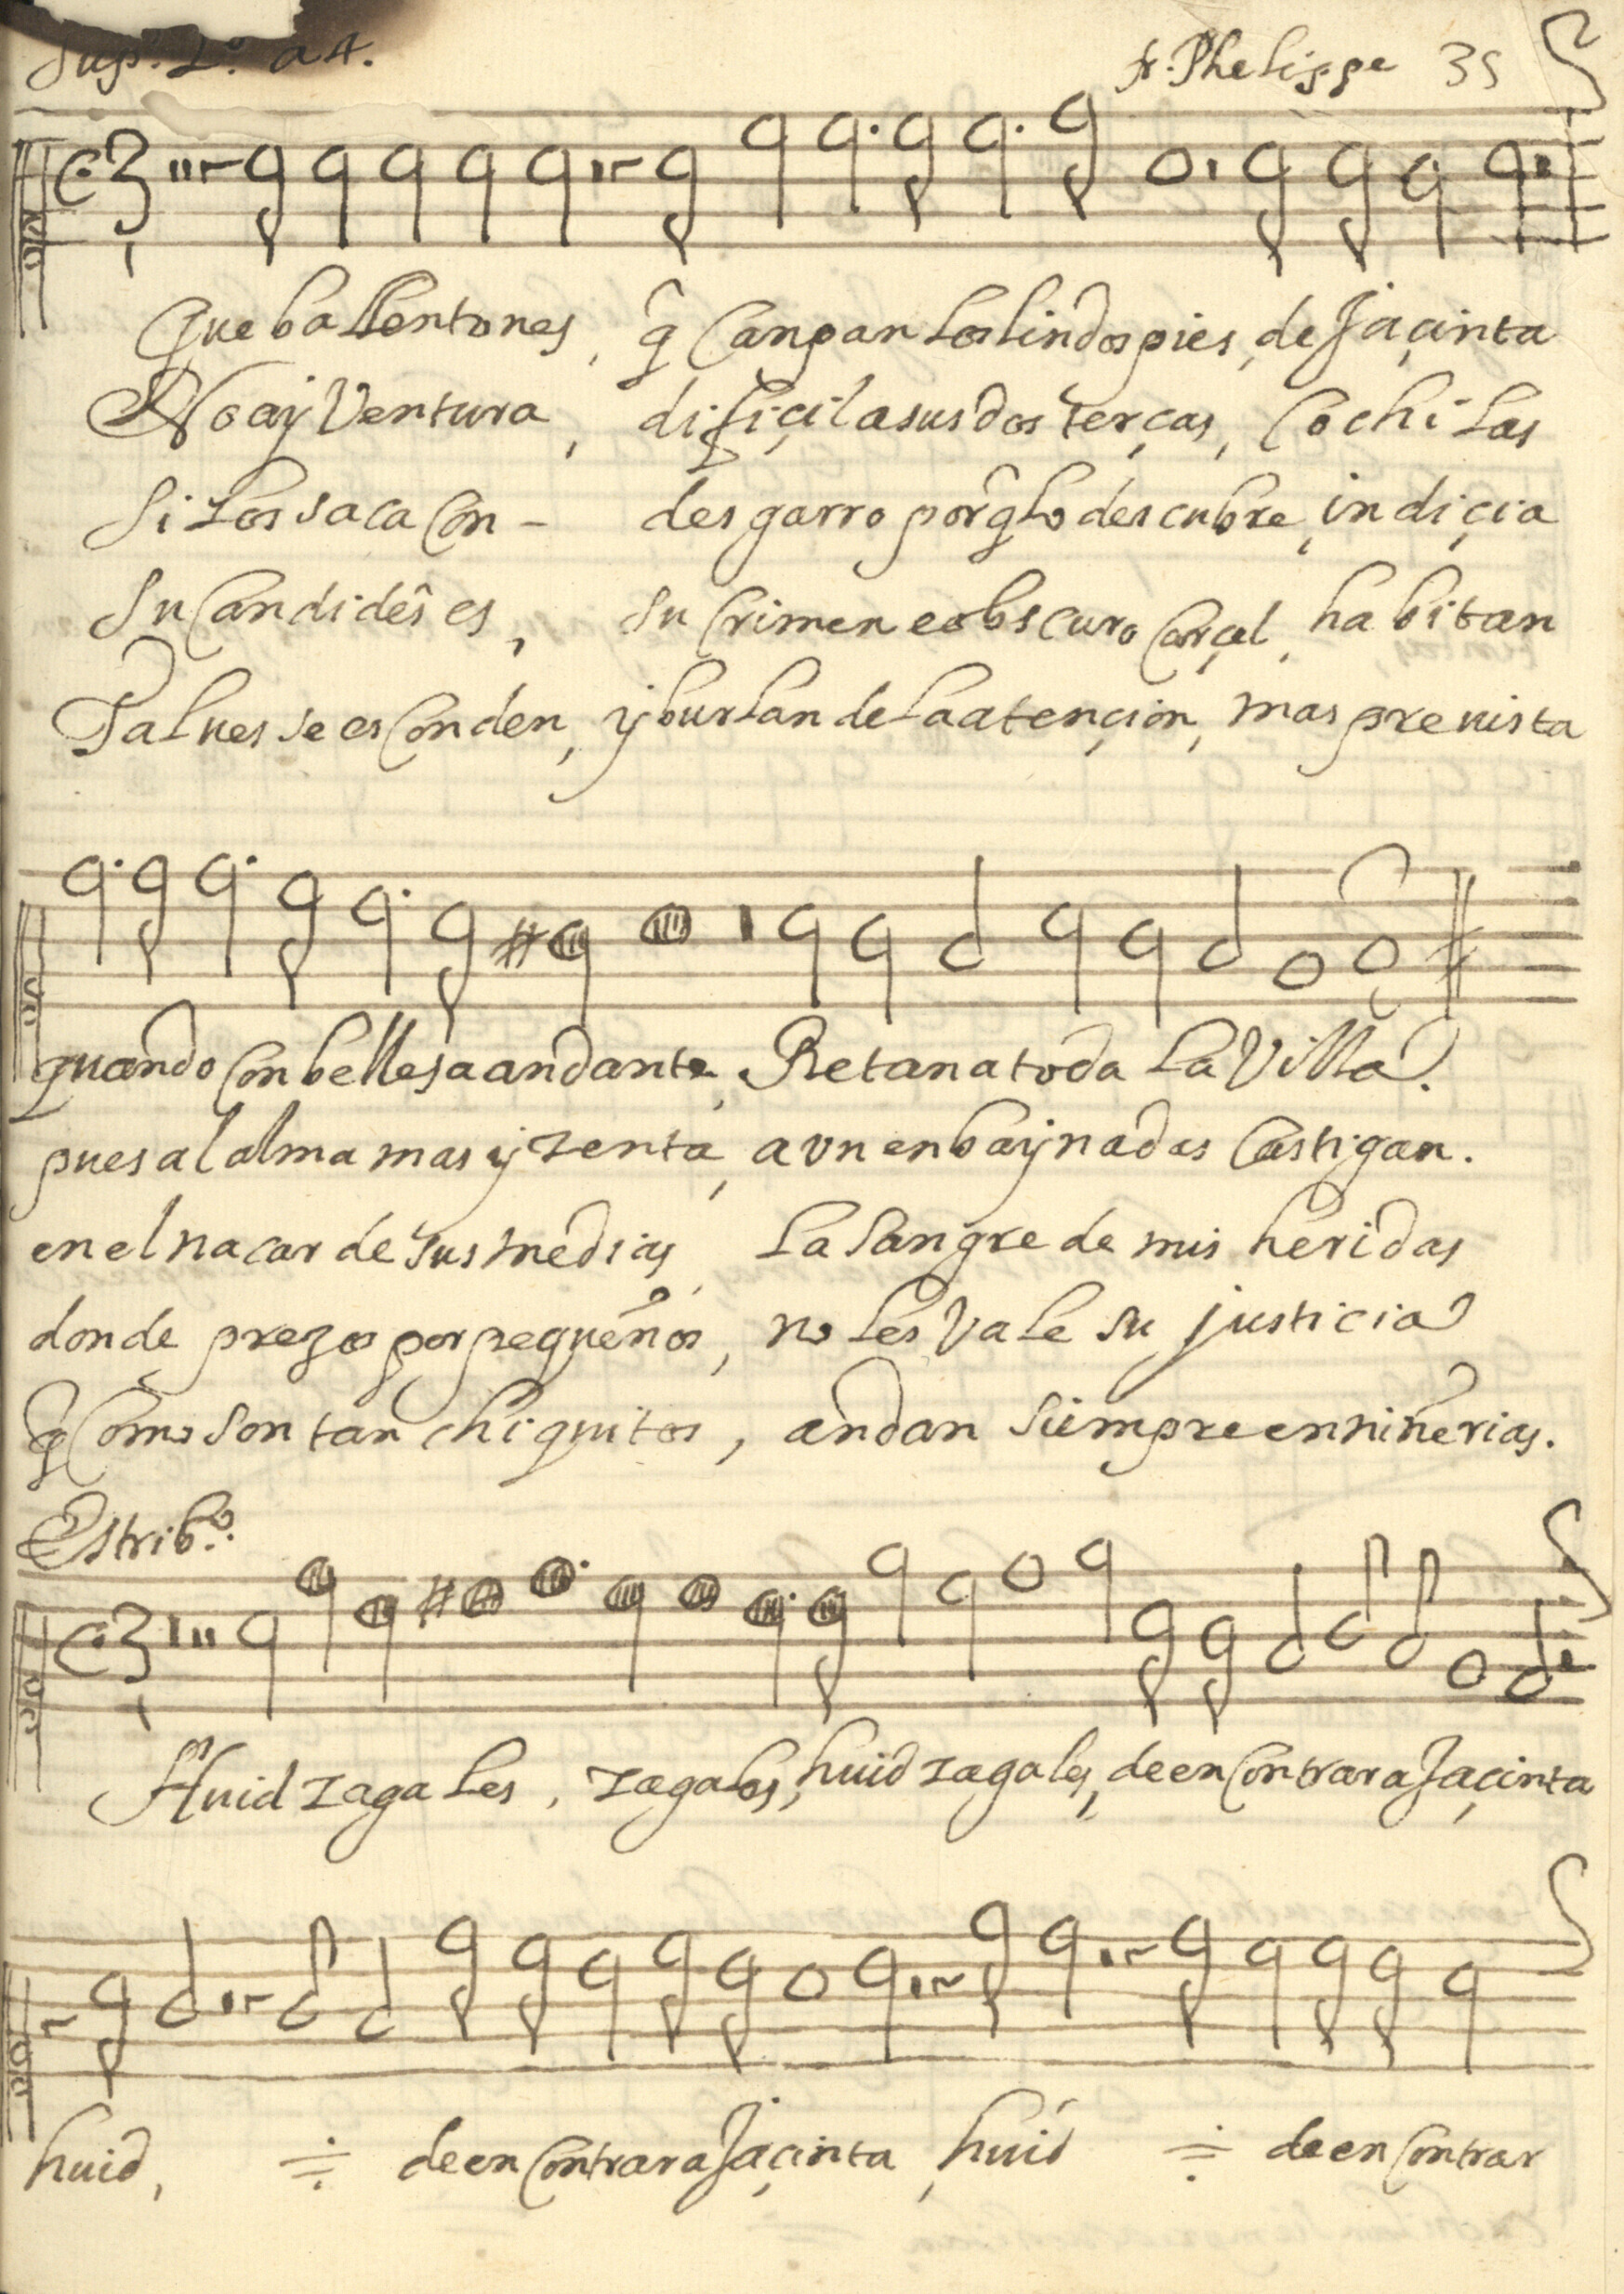 Supº. 2º. a 4.
fr. Phelippe 35
Que balentones, q̂ Canpan los lindos pies, de Jaçinta
No ay Ventura, difiçil a sus dos terças, Cochilas
Si los saca Con- desgarro porq̂ lo descubre, indiçia
Su Candidês es, su Crimen e obscuro Carçel, habitan
Tal ves se esConden, y burlan de la atençion, mas prevista
quando Con bellesa andante, Retan a toda la Villa.
pues al alma mas yzenta, a vn enbaynadas Castigan.
en el nacar de sus medias, la sangre de mis heridas
donde prezos por pequeños, no les vale su justicia
q̂ Como son tan chiquitos, andan siempre en niñerias.
Estribº.
Huid zagales, zagales, huid zagales, de enContrar a Jaçinta
huid, de enContrar a Jaçinta, huid de enContrar